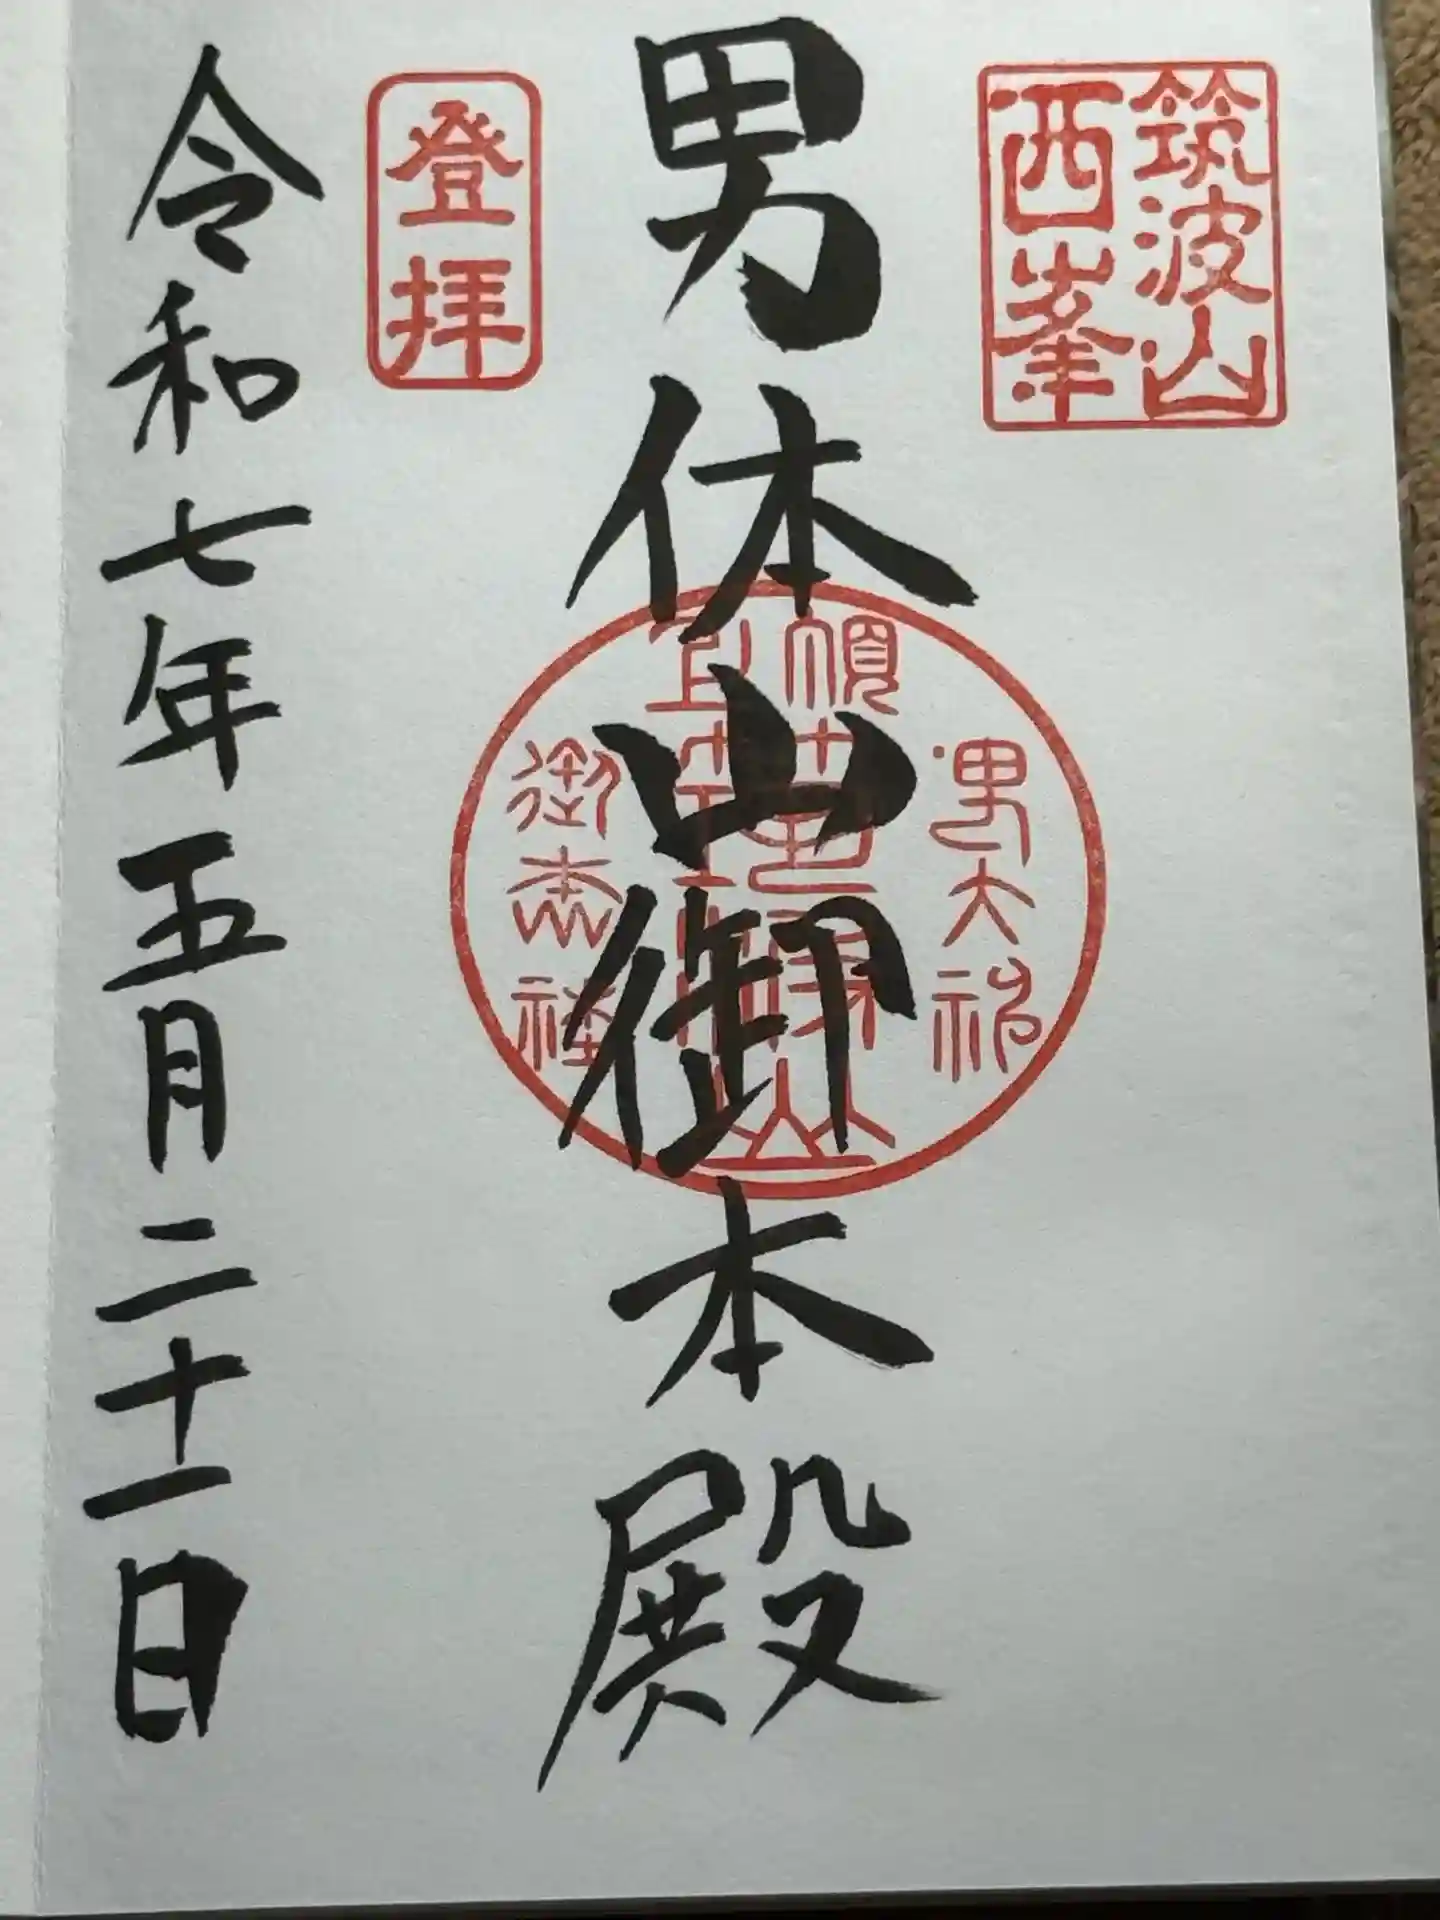 筑波山
西峯
男体山御本殿
登拝
令和七年五月二十一日